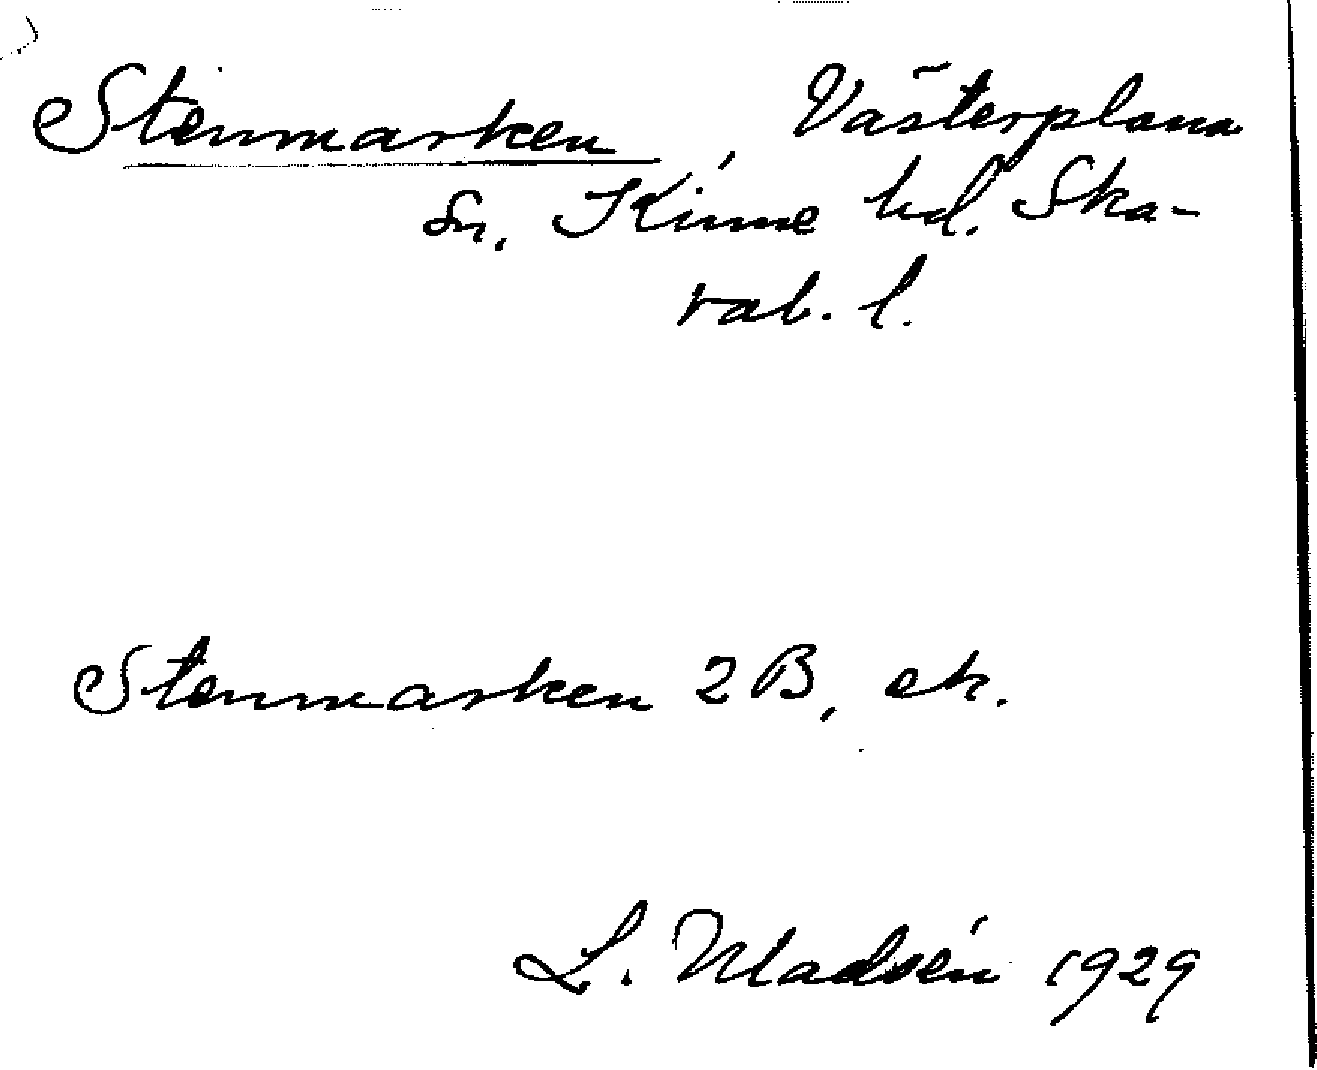 Stenmarken, Västerplana
sn. Kinne hd. Ska-
rab. l.
Stenmarken 2B, ek.
L. Madsén 1929